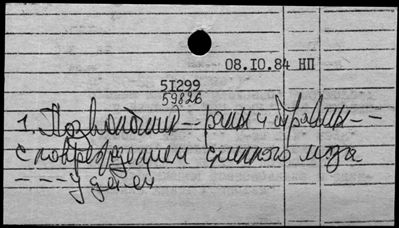 08.10.84 НП
51299
59826
1. Позвоночник -- раны и травмы --
с повреждением спинного мозга
--- у детей